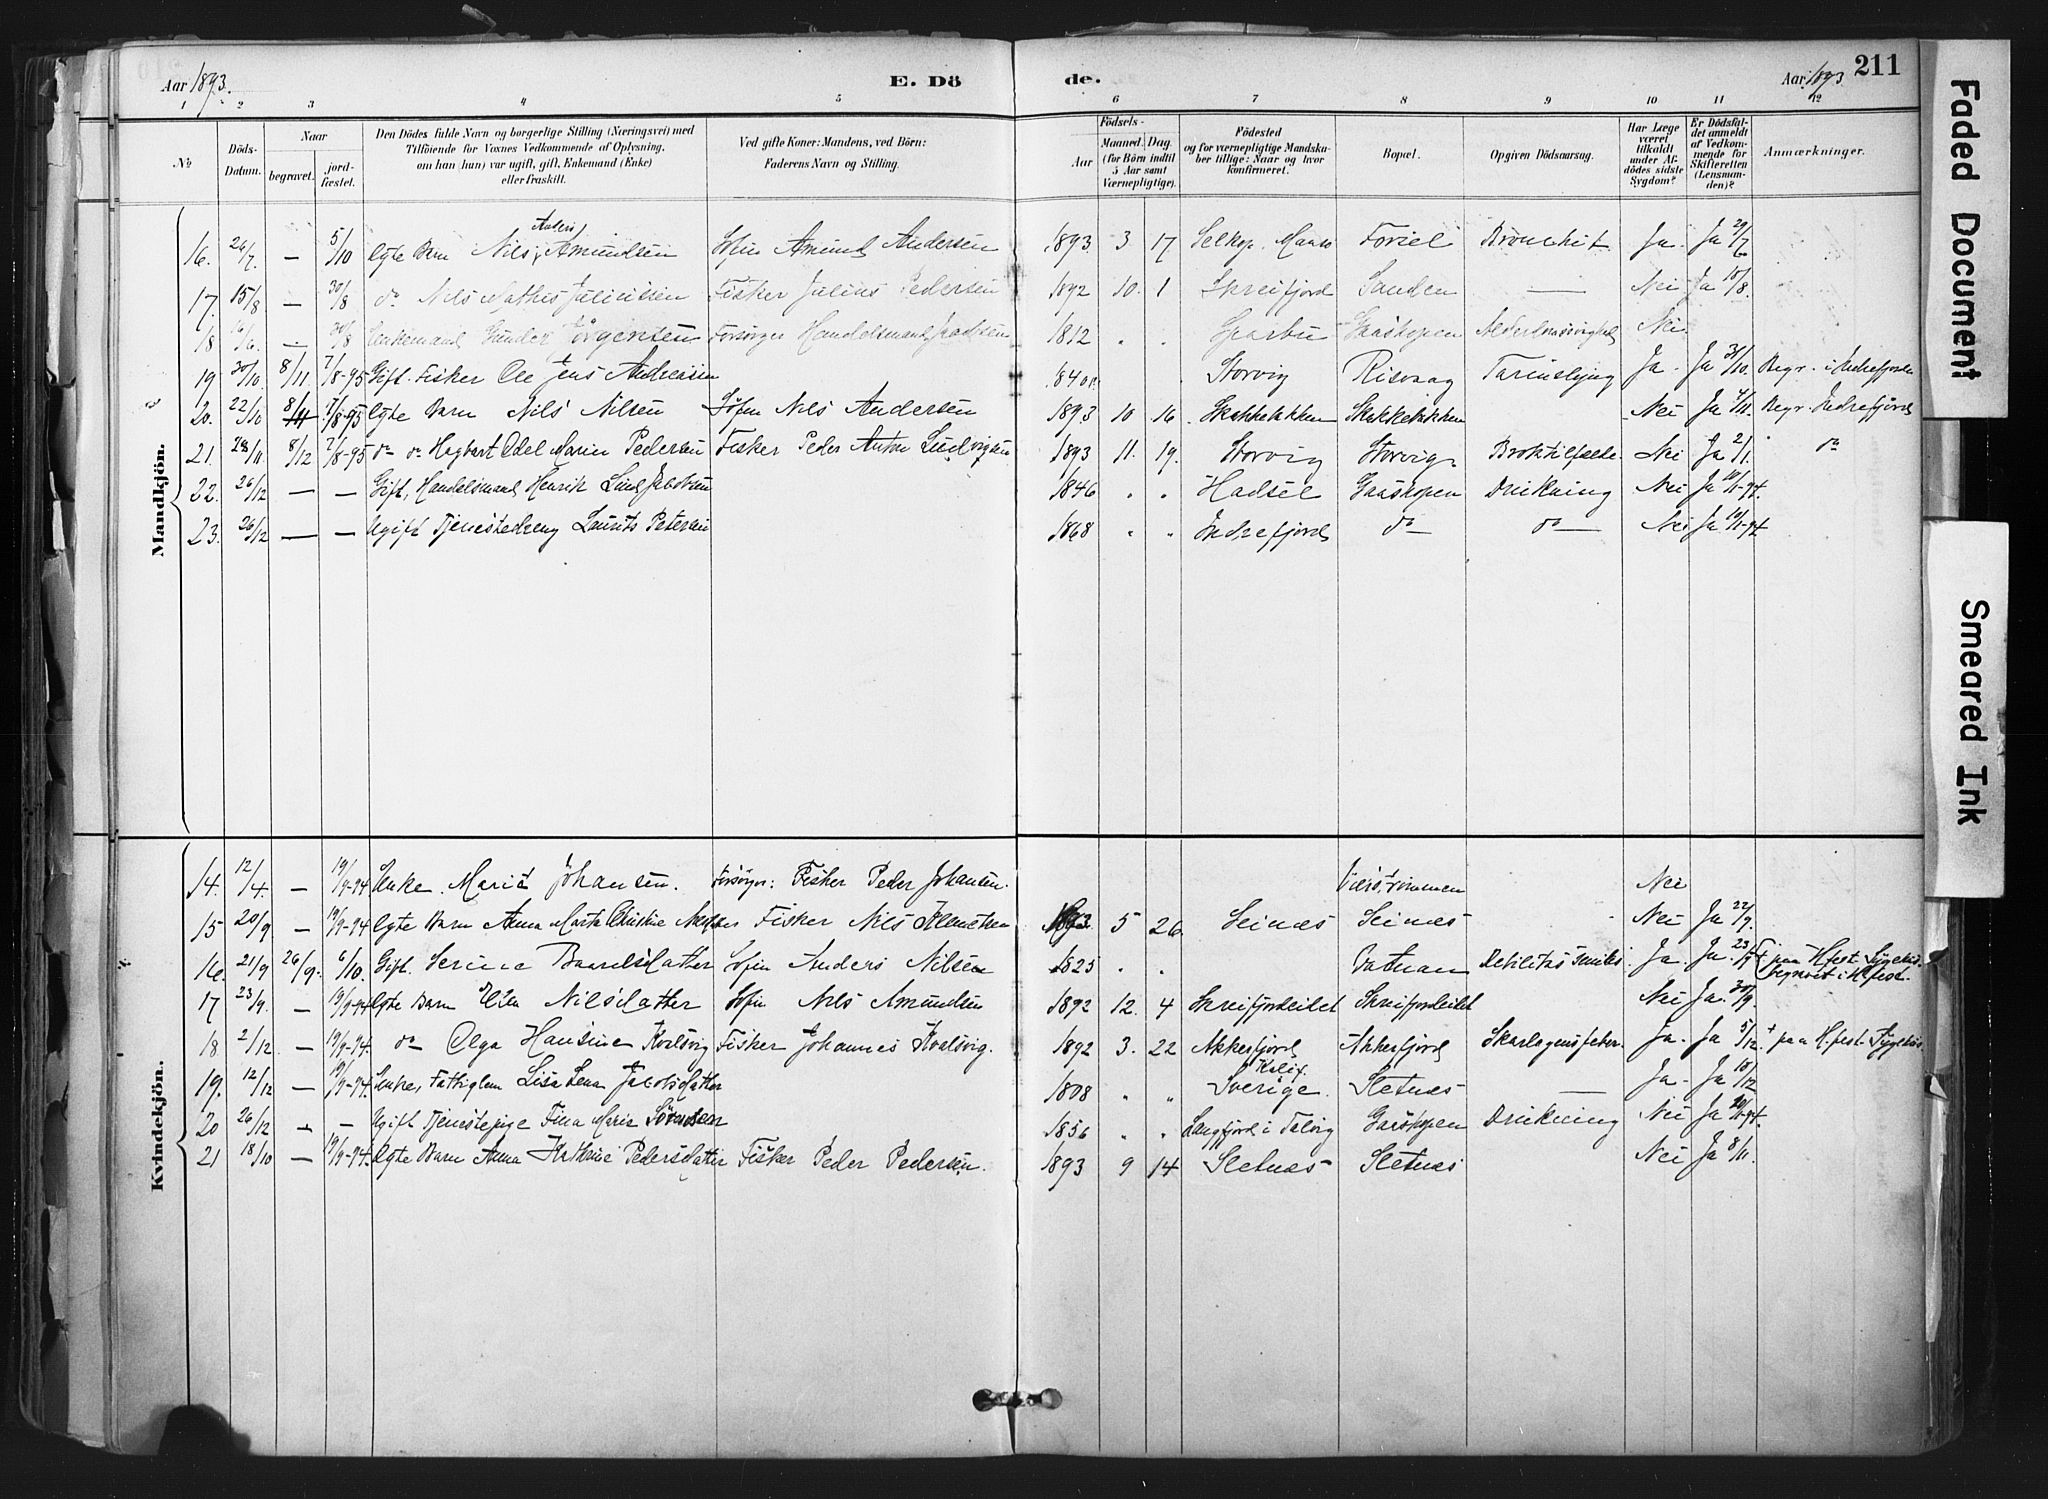 Aar 1893.
E. Dö
de.
Aar 1893
211
1 2 3 4 5 6 7 8 9 10 11 12
№
Döds-Datum.
Naar
begravet.
jord-fæstet.
Den Dödes fulde Navn og borgerlige Stilling (Næringsvei) med
Tilföiende for Voxnes Vedkommende af Oplysning,
om han (hun) var ugift, gift, Enkemand (Enke)
eller fraskilt.
Ved gifte Koner: Mandens, ved Börn:
Faderens Navn og Stilling.
Födsels-
Aar
Maaned. Dag.
(for Börn indtil
5 Aar samt
Værnepligtige).
Födested
og for værnepligtige Mandska-
ber tillige: Naar og hvor
konfirmeret.
Bopæl.
Opgiven Dödsaarsag.
Har Læge
været
tilkaldt
under Af-
dödes sidste
Sygdom?
Er Dödsfal-
det anmeldt
af Vedkom-
mende for
Skifteretten
(Lensman-
den)?
Anmærkninger.
Mandkjön.
16. 26/7. — 5/10 Ægte Barn Nils Anders Amundsen Søfin Amund Andersen 1893 3 17 Selkop. Bronchit Ja. Ja
17. 15/8 — 30/8 do Nils Mathis Julius Fisker Julius Pedersen 1892 10. 1 Skreifjord Sanden — Nei Ja 18/8.
18 — Enkemand Gunder Jörgensen Forsörger Handelsmand 1812 " " Sparbu Gaashopen Nei.
19. 30/10. 8/11 7/8-95 Gift. Fisker Ole Jens Andreassen Storvig Risvaag Ja. Ja 31/10. Begr. i Indrefjorden
20. 22/10 8/11 7/8-95 Ægte Barn Nils Nilsen Søfin Nils Andersen 1893 10 16 Skakkebakken Skakkebakken Nei Ja Begr. Indrefjord
21. 28/11 8/12 7/8-95 do do Hagbart Odel Marin Pedersen Fisker Peder Anton Ludvigsen 1893 11. 19. Storvig Storvig Nei Ja 2/1. do
22. 26/12 — — Gift, Handelsmand Henrik Lind Jakobsen 1846 " " Hadsel Gaashopen Drukning Nei Ja
23. 26/12 — — Ugift Tjenestedreng Laurits Petersen 1868 " " Indrefjord do — do — Nei Ja
Kvindekjön.
14. 12/4 — 19/9-94 Enke. Maria Johansen. Forsörger: Fisker Peder Johansen. Nei
15 20/9 — 19/9-94 Ægte Barn Anna Marta Christine Fisker Nils Klemetsen 5 26 Seinæs Seinæs Nei Ja 22/9.
16. 21/9 26/9. 6/10. Gift. Serine Baardsdatter Søfin Anders Nilsen 1825 " " Vatnan Debilitas senilis. Ja. Ja. 23/9 paa H.fest Sygehus. begravet i H.fest.
17 23/9. — 19/9-94 Ægte Barn Elen Nilsdatter Søfin Nils Amundsen 1892 12. 4 Skreifjordeidet Skreifjordeidet Nei Ja. 30/9.
18. 2/12. — 19/9-94. do Olga Hansine Kvalsvig Fisker Johannes Kvalsvig. 1892 3. 22 Akkerfjord Akkerfjord Skarlagensfeber. Ja. Ja 5/12. + paa H.fest Sygehus.
19. 12/12 — 19/9-94. Enke, Fattiglem Lisa Lena Jacobsdatter 1808 " " Kalix Sverige. Sletnes — Ja. Ja 18/12
20 26/12 — — Ugift Tjenestepige Fina Marie Sörensen 1856 " " Langfjord i Talvig Gaashopen Drukning Nei Ja
21 18/10 — 19/9-94. Ægte Barn Anna Kathrine Pedersdatter Fisker Peder Pedersen. 1893 9 14 Sletnes Sletnes Nei Ja 8/11.
Faded Document
Smeared Ink